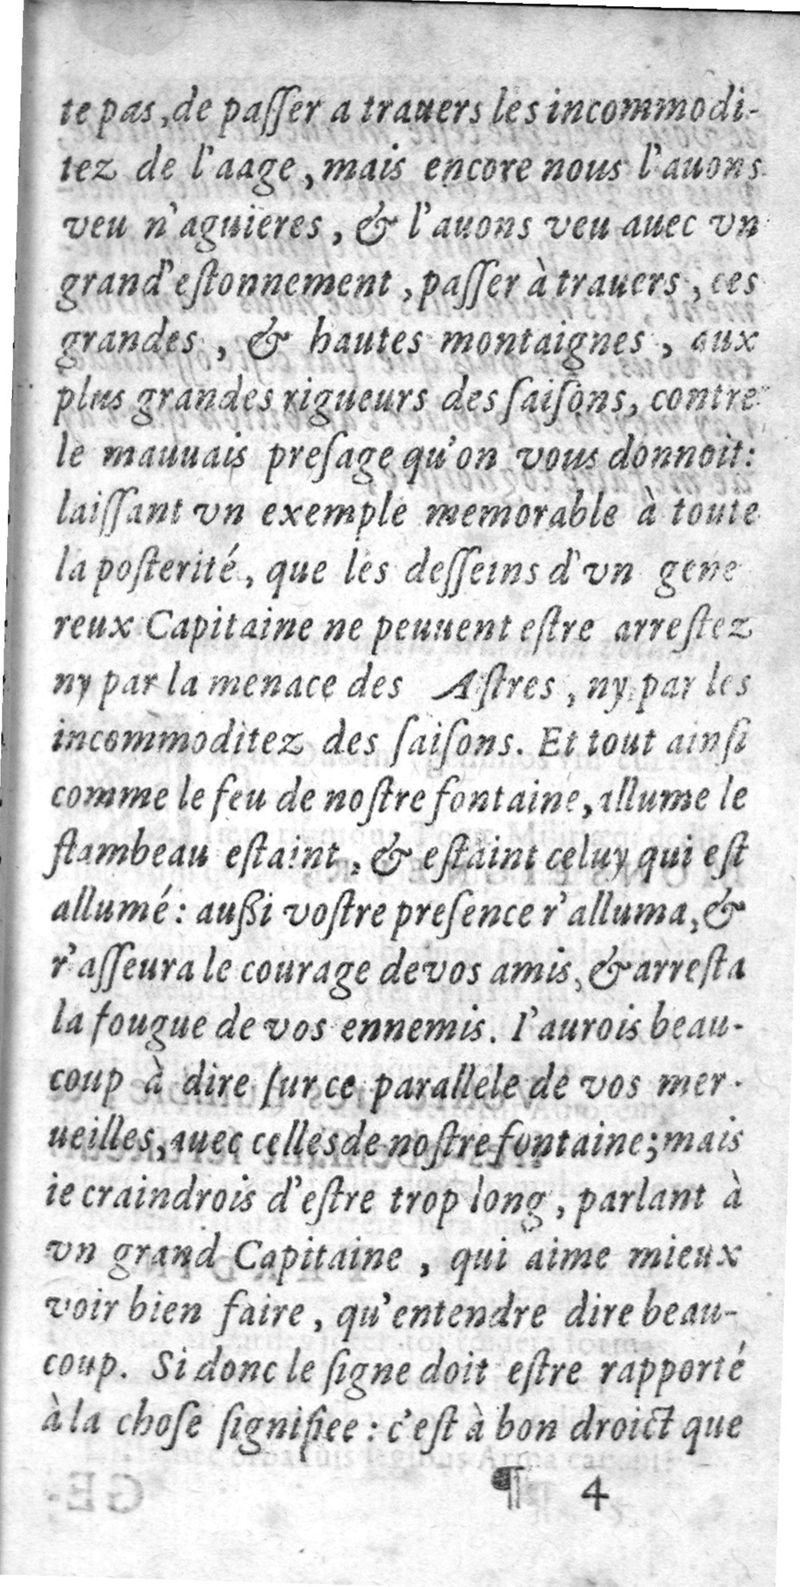 te pas, de paſſer a trauers les incommodi-
tez de l'aage, mais encore nous l'auons
veu n'aguieres, & l'auons veu auec vn
grand' eſtonnement, paſſer à trauers, ces
grandes, & hautes montaignes, aux
plus grandes rigueurs des ſaiſons, contre
le mauuais preſage qu'on vous donnoit:
laiſſant vn exemple memorable à toute
la poſterité, que les deſſeins d'vn gene
reux Capitaine ne peuuent eſtre arreſtez
ny par la menace des Aſtres, ny par les
incommoditez des ſaiſons. Et tout ainſi
comme le feu de noſtre fontaine, allume le
flambeau eſtaint, & eſtaint celuy qui eſt
allumé: außi voſtre preſence r'alluma, &
r'aſſeura le courage de vos amis, & arreſta
la fougue de vos ennemis. I'aurois beau-
coup à dire ſur ce parallele de vos mer-
ueilles, auec celles de noſtre fontaine; mais
ie craindrois d'eſtre trop long, parlant à
vn grand Capitaine, qui aime mieux
voir bien faire, qu'entendre dire beau-
coup. Si donc le ſigne doit eſtre rapporté
à la choſe ſignifiee: c'eſt à bon droict que
¶ 4